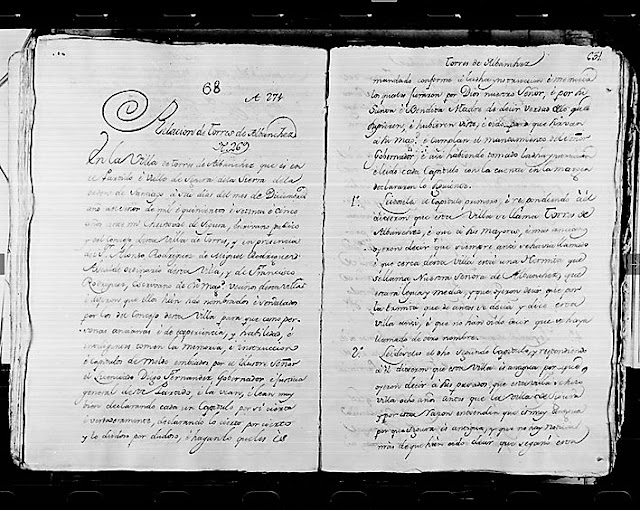 68
A 274
Relacion de Torres de Albanchez
N.269
En la Villa de Torres de Albanchez que es en
el Partido é Villa de Segura de la Sierra de la
Orden de Santiago á dias del mes de Diciembre
año de mil é quinientos é setenta é cinco
años ante mi Escrivano publico
del Concejo desta Villa de Torres, y en presencia
de Alonso Rodriguez
Alcalde ordinario desta Villa, y de Francisco
Rodriguez, Escrivano de Su Mag. Vecino desta Villa
é dijeron que ellos han sido nombrados é señalados
por los del Concejo desta Villa para que como per-
sonas ancianas é de experiencia, y habiles, é
con la Memoria, é instruccion
é Capitulos de Molde embiados por el Ilustre Señor
el Licenciado Diego Fernandez Governador é Justicia
general deste Partido, é la vean, é lean muy
bien declarando cada un Capitulo por si cierta
é verdaderamente, declarando lo cierto por cierto
y lo dudoso por dudoso, é hagan lo que les es
Torres de Albanchez
651
mandado conforme á la dicha instruccion é memoria
los quales juraron por Dios nuestro Señor, é por
é Bendita Madre de decir verdad de lo que
supieren, é hubieren visto, é oido para que hagan
á Su Mag. é cumplan el mandamiento del Señor
Governador, é asi habiendo tomado la dicha instruccion
é leido cada Capitulo con la cuenta en la margen
declararon lo siguiente
1º. Leidoseles el Capitulo primero, é respondiendo á él
dixeron que esta Villa se llama Torres de
Albanchez, é que á sus mayores, é mas ancianos
oyeron decir que siempre asi se há llamado
é que cerca desta Villa está una Hermita que
se llama Nuestra Señora de Albanchez, que
estará legua y media, y que oyeron decir que por
la hermita que de antes se decia y dice esta
Villa ansi, é que no han oido decir que se haya
llamado de otro nombre.
2º. Leidoseles el dho segundo Capitulo, y respondiendo
á él dixeron que esta Villa es antigua por que
oyeron decir á sus pasados que esta Villa se hizo
Villa ocho años antes que la Villa de Segura
y por esta razon entienden que es muy antigua
por que Segura es antigua, y que no hay noticia
mas de que han oido decir que se ganó esta